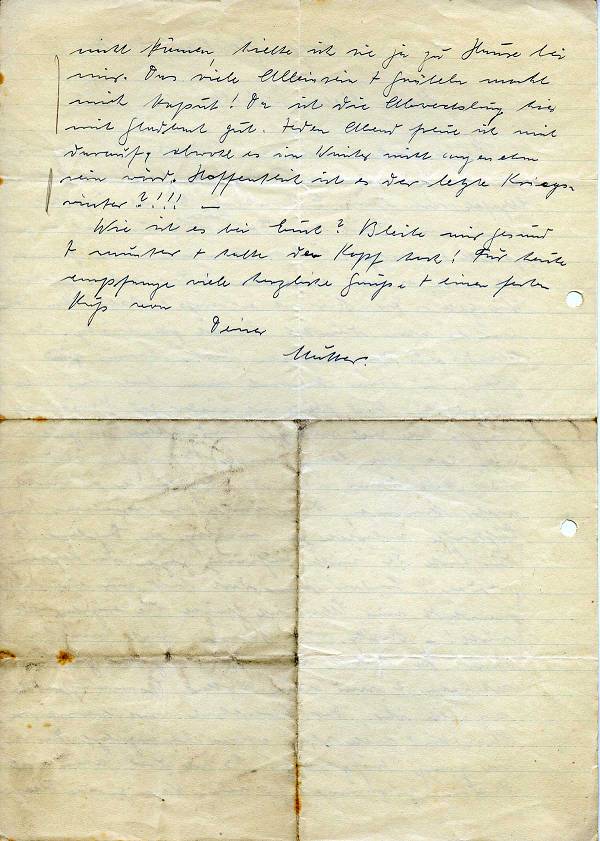 nicht können, hielte ich sie ja zu Hause bei
mir. Das viele Alleinsein + Grübeln macht
mich kaput! Da ist die Abwechslung hier
mit gut. Jeden Abend freue ich mich
darauf, obwohl es im Winter nicht angenehm
sein wird. Hoffentlich ist es der letzte Kriegs-
winter?!!! —
Wie ist es bei Euch? Bleibe mir gesund
+ munter + halte den Kopf hoch! Für heute
empfange viele herzliche Grüße + einen festen
Kuß von
Deiner
Mutter.